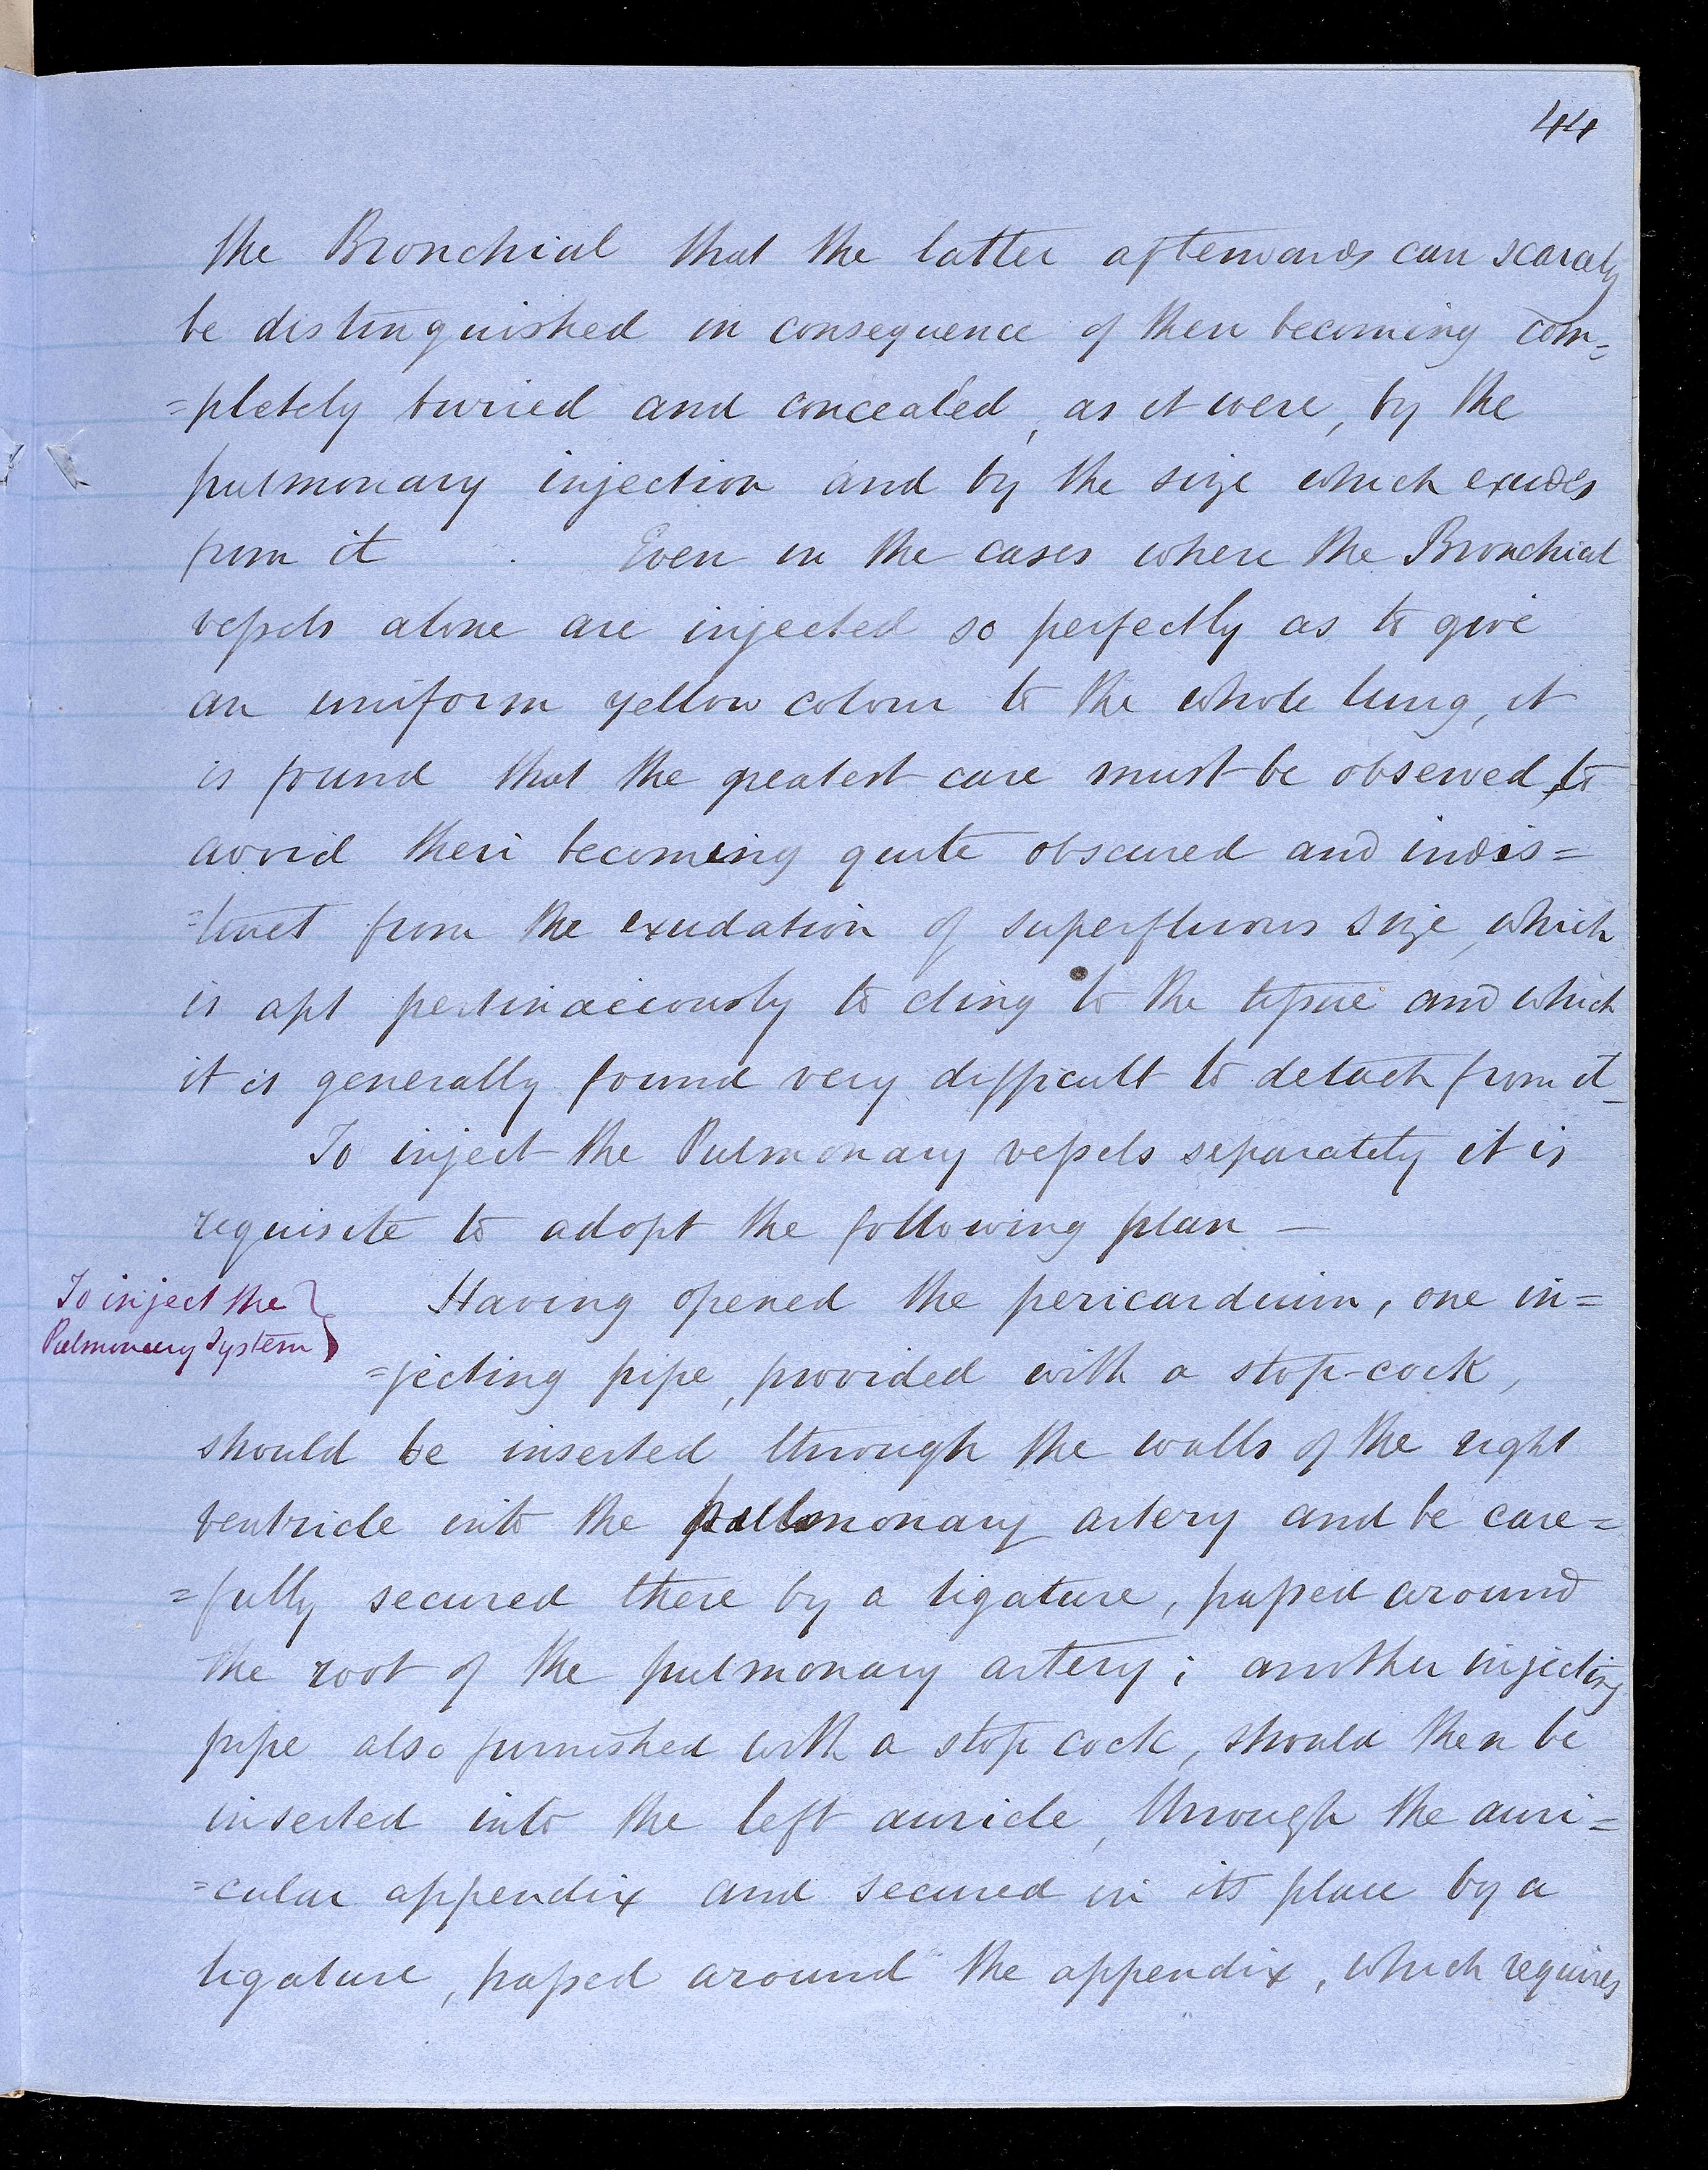 44
the Bronchial that the latter afterwards can scarcely
be distinguished in consequence of their becoming com=
=pletely buried and concealed, as it were, by the
pulmonary injection and by the size which exudes
from it . Even in the cases where the Bronchial
vessels alone are injected so perfectly as to give
an uniform yellow colour to the whole lung, it
is found that the greatest care must be observed, to
avoid their becoming quite obscured and indis=
=tinct from the exudation of superfluous size, which
is apt pertinaciously to cling to the tissue and which
it is generally found very difficult to detach from it_
To inject the Pulmonary vessels separately it is
requisite to adopt the following plan —
To inject the
Pulmonary System
Having opened the pericardium, one in=
=jecting pipe, provided with a stop-cock,
should be inserted, through the walls of the right
ventricle into the pulmonary artery and be care=
=fully secured there by a ligature, passed around
the root of the pulmonary artery; another injecting
pipe also furnished with a stop cock, should then be
inserted into the left auricle, through the auri=
=cular appendix and secured in its place by a
ligature, passed around the appendix, which requires